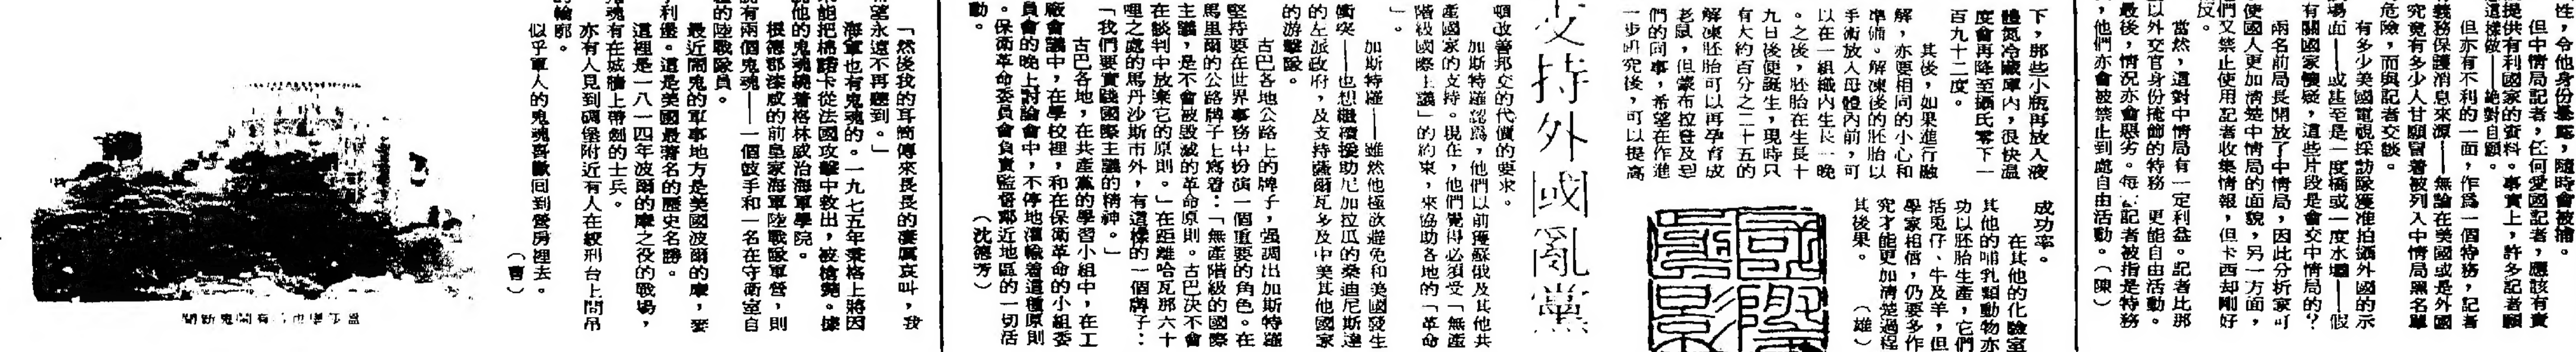 性，令他身份暴露，隨時會被捕。
但中情局記者，任何愛國記者，應該有責
提供有利國家的資料。事實上，許多記者願
這樣做——絕對自願。
但亦有不利的一面，作爲一個特務，記者
義務保護消息來源——無論在美國或是外國
究竟有多少人甘願冒着被列入中情局黑名單
危險，而與記者交談。
有多少美國電視採訪隊獲准拍攝外國的示
場面——或甚至是一度橋或一度水壩——假
有關國家懷疑，這些片段是會交中情局的？
兩名前局長開放了中情局，因此分析家可
使國人更加清楚中情局的面貌，另一方面，
們又禁止使用記者收集情報，但卡西却剛好
反。
當然，這對中情局有一定利益。記者比那
以外交官身份掩飾的特務　更能自由活動。
最後，情況亦會惡劣。每　記者被指是特務
，他們亦會被禁止到處自由活動。（陳）
下，那些小瓶再放入液
體氮冷藏庫內，很快溫
度會再降至攝氏零下一
百九十二度。
其後，如果進行融
解，亦要相同的小心和
準備。解凍後的胚胎以
手術放入母體內前，可
以在一組織內生長一晚
。之後，胚胎在生長十
九日後便誕生，現時只
有大約百分之二十五的
解凍胚胎可以再孕育成
老鼠，但蒙布拉登及耶
們的同事，希望在作進
一步研究後，可以提高
成功率。
在其他的化驗室
其他的哺乳類動物亦
功以胚胎生產，它們
括兎仔、牛及羊，但
學家相信，仍要多作
究才能更加清楚過程
其後果。　（雄）
支持外國亂黨
頓改善邦交的代價的要求。
加斯特羅認爲，他們以前獲蘇俄及其他共
產國家的支持。現在，他們覺得必須受「無產
階級國際主議」的約束，來協助各地的「革命
」。
加斯特羅——雖然他極欲避免和美國發生
衝突——也想繼續援助尼加拉瓜的桑廸尼斯達
的左派政府，及支持薩爾瓦多及中美其他國家
的游擊隊。
古巴各地公路上的牌子，强調出加斯特羅
堅持要在世界事務中扮演一個重要的角色。在
馬里爾的公路牌子上寫着：「無產階級的國際
主議，是不會被毀滅的革命原則。古巴決不會
在談判中放棄它的原則。」在距離哈瓦那六十
哩之處的馬丹沙斯市外，有這樣的一個牌子：
「我們要實踐國際主議的精神。」
古巴各地，在共產黨的學習小組中，在工
廠會議中，在學校裡，和在保衛革命的小組委
員會的晚上討論會中，不停地灌輸着這種原則
。保衛革命委員會負責監督鄰近地區的一切活
動。　（沈德芳）
「然後我的耳筒傳來長長的凄厲哀叫，我
希望永遠不再聽到。」
海軍也有鬼魂的。一九七五年桑格上將因
未能把棉諾卡從法國攻擊中救出，被槍斃。據
說他的鬼魂繞着格林威治海軍學院。
根德郡漆咸的前皇家海軍陸戰隊軍營，則
說有兩個鬼魂——一個鼓手和一名在守衛室自
殺的陸戰隊員。
最近鬧鬼的軍事地方是美國波爾的摩，麥
利堡。這是美國最著名的歷史名勝。
這裡是一八一四年波爾的摩之役的戰場，
鬼魂有在城牆上帶劍的士兵。
亦有人見到碉堡附近有人在絞刑台上問吊
的輪廓。
似乎軍人的鬼魂喜歡回到營房裡去。
（曹）